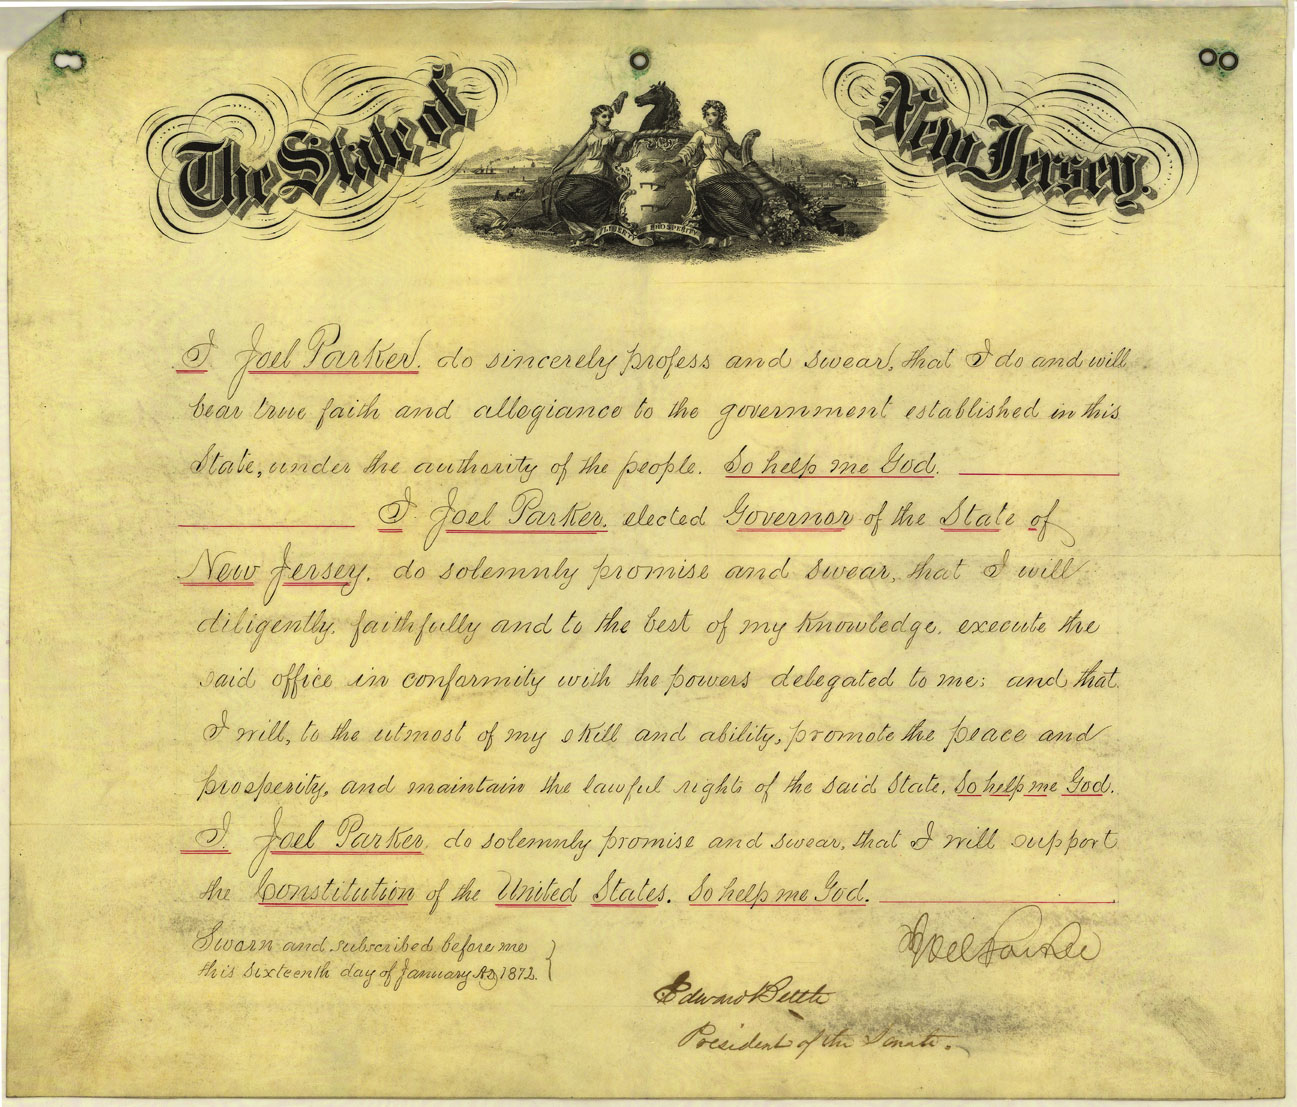 The State of New Jersey.
LIBERTY AND PROSPERITY
I Joel Parker, do sincerely profess and swear, that I do and will
bear true faith and allegiance to the government established in this
State, under the authority of the people. So help me God.
I Joel Parker, elected Governor of the State of
New Jersey, do solemnly promise and swear, that I will
diligently, faithfully and to the best of my knowledge, execute the
said office in conformity with the powers delegated to me; and that
I will, to the utmost of my skill and ability, promote the peace and
prosperity, and maintain the lawful rights of the said State. So help me God.
I, Joel Parker, do solemnly promise and swear, that I will support
the Constitution of the United States. So help me God.
Joel Parker
Sworn and subscribed before me
this sixteenth day of January AD, 1872.
Edward Bettle
President of the Senate.